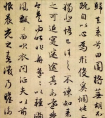 歸去來兮田園將蕪胡不
歸既自以心為形役奚惆
悵而獨悲悟已往之不諫
知來者之可追實迷途其
未遠覺今是而昨非舟遙
遙以輕颺風飄飄而吹衣
問征夫以前路
恨晨光之熹微乃瞻